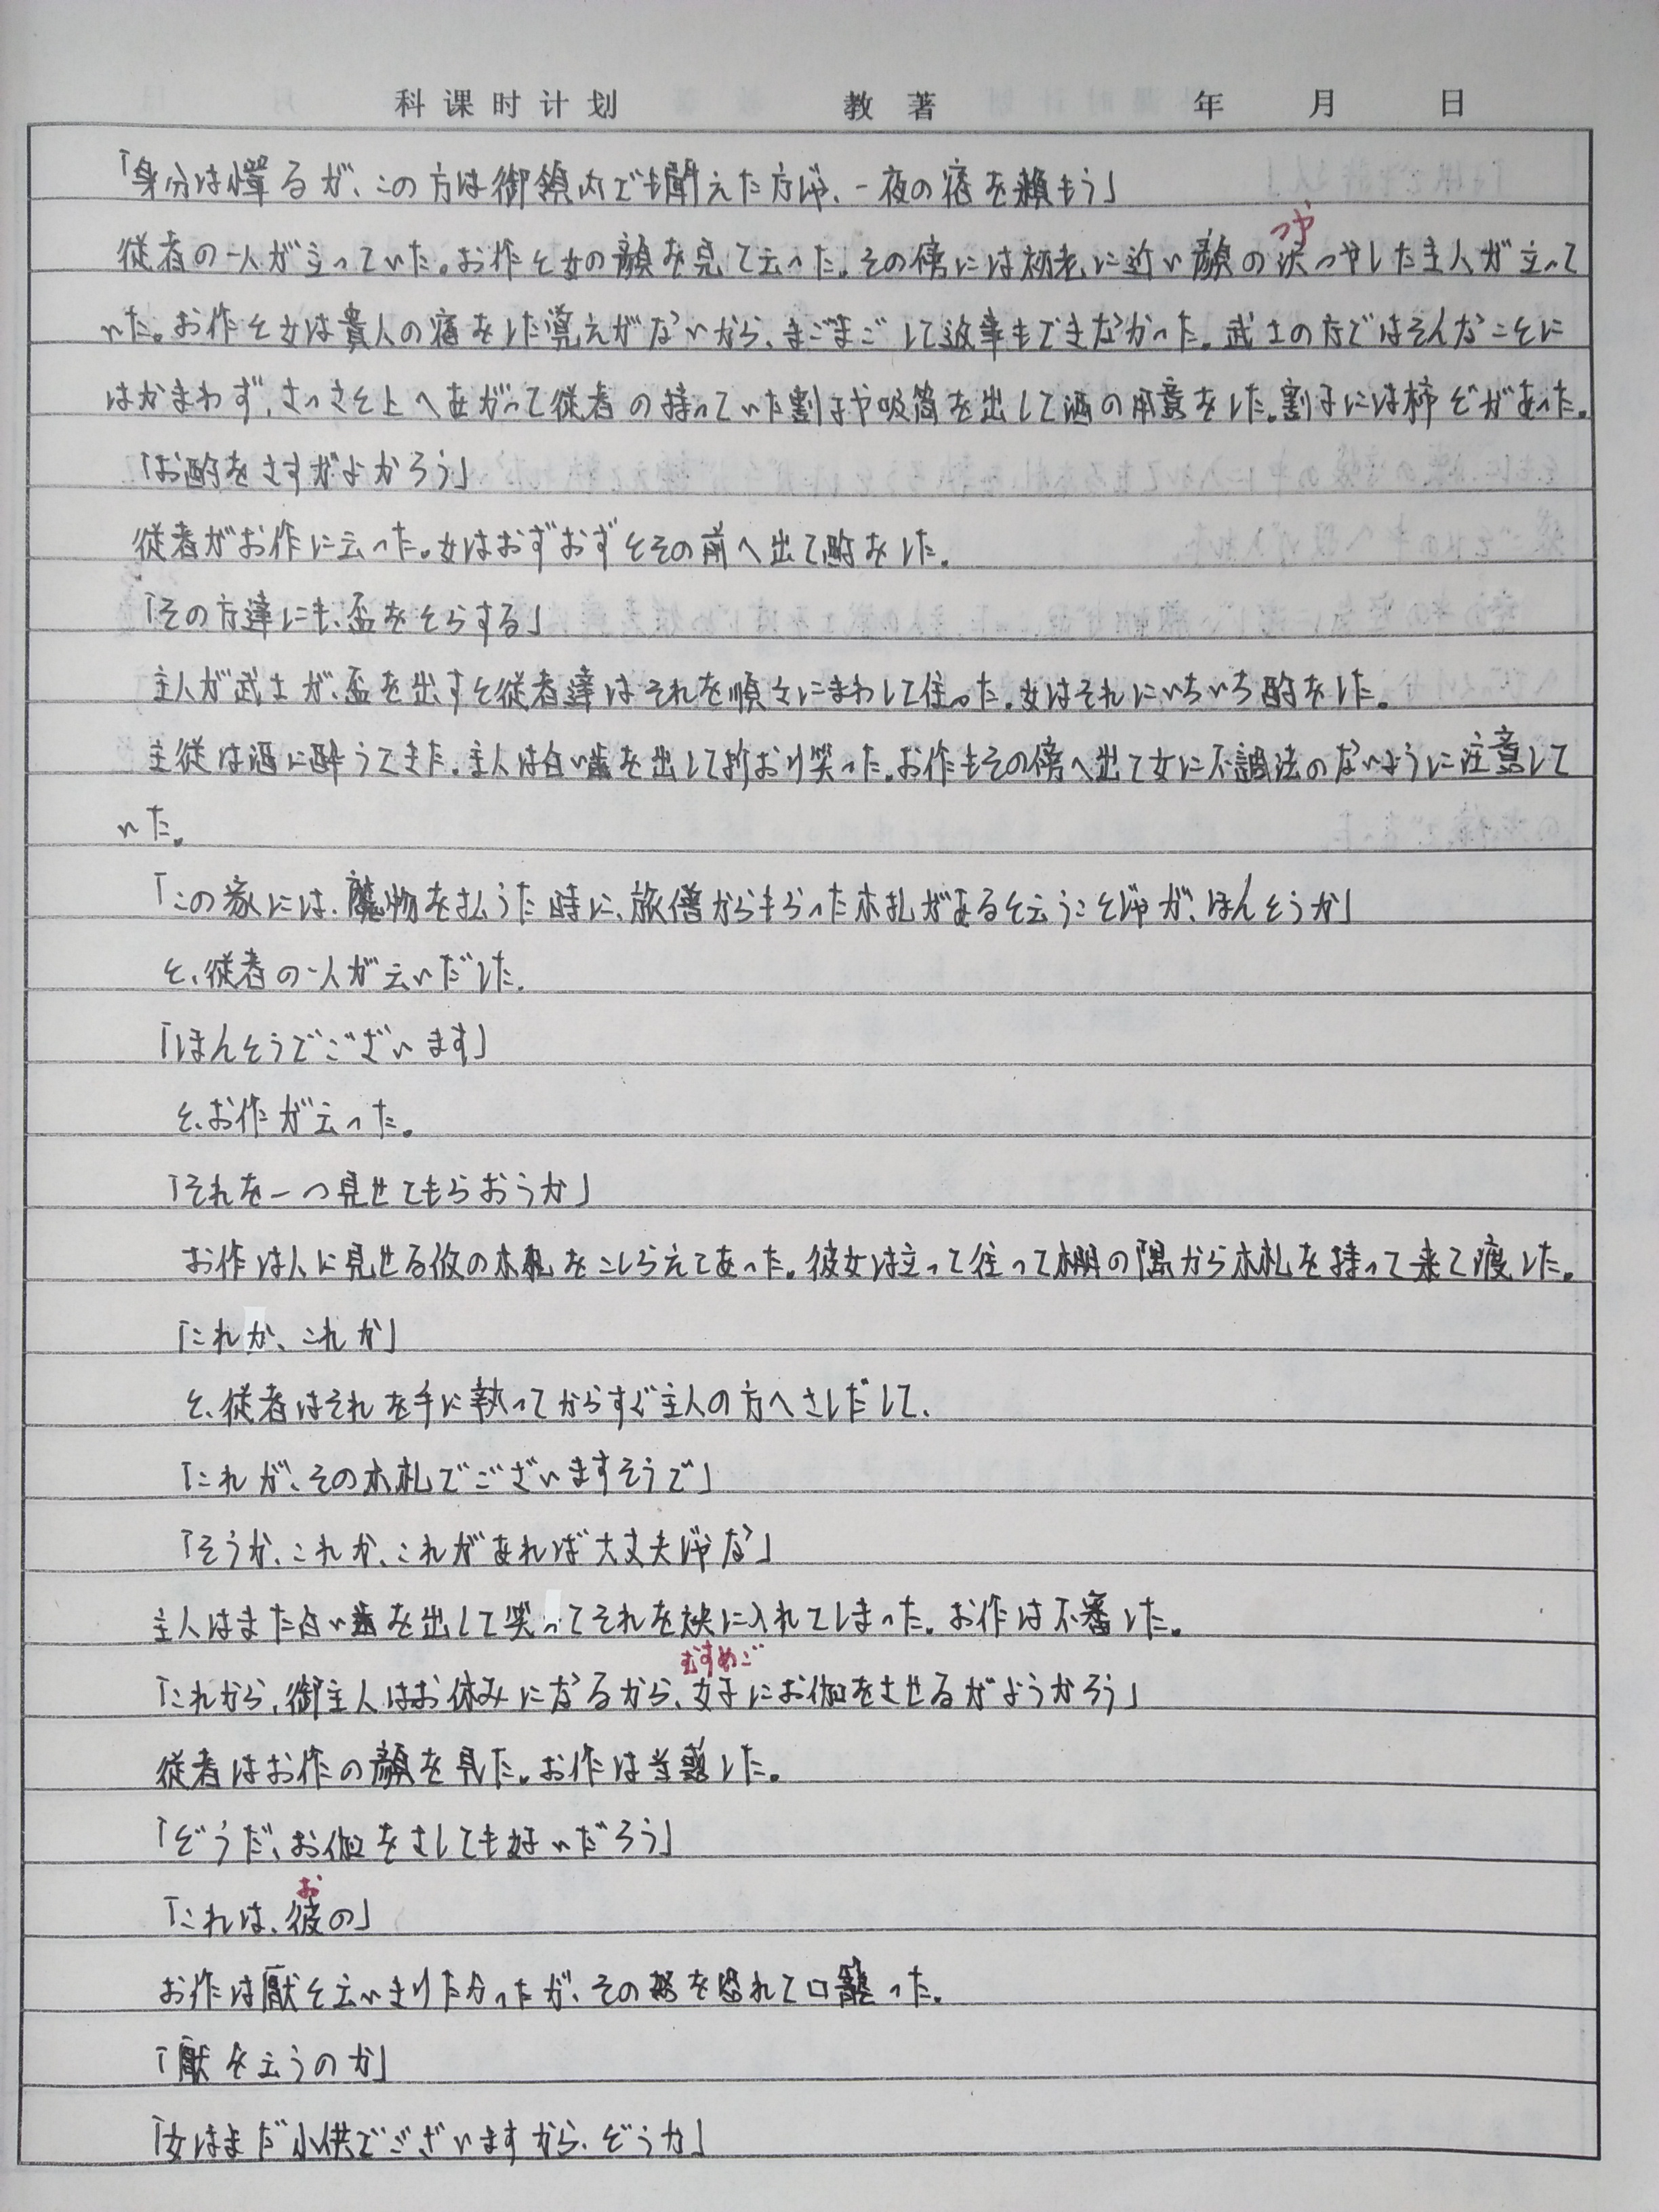 科课时计划 教著 年 月 日
「身分は憚るが、この方は御領内でも聞えた方じゃ、一夜の宿を頼もう」
従者の一人が立っていた。お作と女の顔を見て云った。その傍には初老に近い顔のつやつやした主人が立って
いた。お作と女は貴人の宿をした覚えがないから、まごまごして返事もできなかった。武士の方ではそんなことに
はかまわず、さっさと上へあがって従者の持っていた割子や吸筒を出して酒の用意をした。割子には柿どがあった。
「お酌をさすがよかろう」
従者がお作に云った。女はおずおずとその前へ出て酌をした。
「その方達にも、盃をとらする」
主人が武士が、盃を出すと従者達はそれを順々にまわして往った。女はそれにいちいち酌をした。
主従は酒に酔うてきた。主人は白い歯を出して折おり笑った。お作もその傍へ出て女に不調法のないように注意して
いた。
「この家には、魔物を払うた時に、旅僧からもらった木札があると云うことじゃが、ほんとうか」
と、従者の一人が云いだした。
「ほんとうでございます」
と、お作が云った。
「それを一つ見せてもらおうか」
お作は人に見せる仮の木札をこしらえてあった。彼女は立って往って棚の隅から木札を持って来て渡した。
「これか、これか」
と、従者はそれを手に執ってからすぐ主人の方へさしだして、
「これが、その木札でございますそうで」
「そうか、これか、これがあれば大丈夫じゃな」
主人はまた白い歯を出して笑ってそれを袂に入れてしまった。お作は不審した。
むすめご
「これから、御主人はお休みになるから、女子にお伽をさせるがようかろう」
従者はお作の顔を見た。お作は当惑した。
「どうだ、お伽をさしても好いだろう」
お
「これは、彼の」
お作は厭と云いきりたかったが、その怒を恐れて口籠った。
「厭を云うのか」
「女はまだ小供でございますから、どうか」